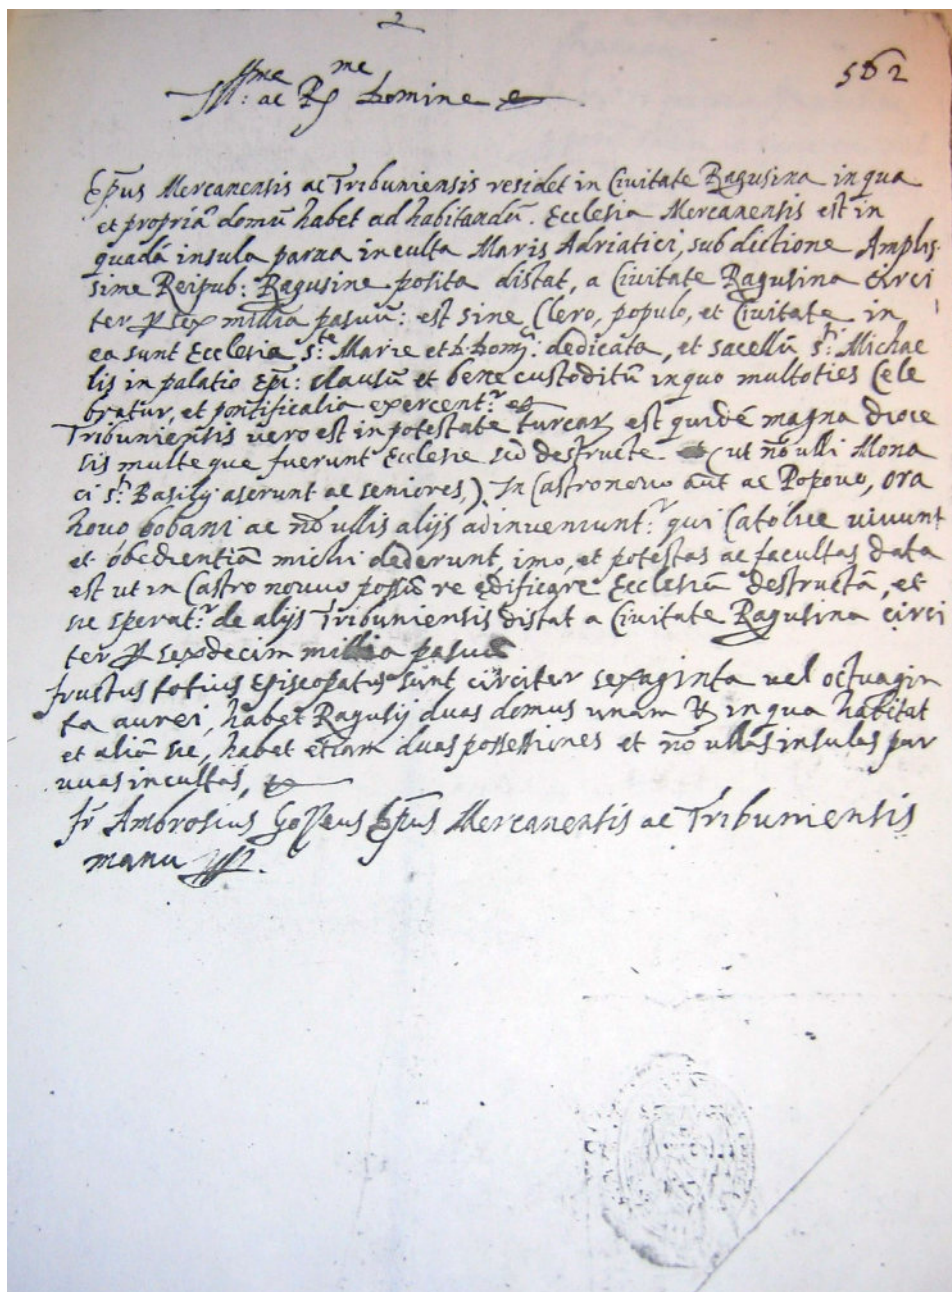 2
562
Ill:me ac R.me Domine
Ep̃us Mercanensis ac Tribuniensis residet in Civitate Ragusina in qua
et propria domũ habet ad habitandũ. Ecclesia Mercanensis est in
quadã insula parva inculta Maris Adriatici, sub dictione Amplis
sime Reipub: Ragusine posita distat, a Civitate Ragusina Circi
ter sex millia pasuũ: est sine Clero, populo, et Civitate in
ea sunt Ecclesia s:te Marie et dedicata, et sacellũ s:ti Michae
lis in palatio Ep̃i: clausũ et bene custoditũ in quo multoties Cele
bratur, et pontificalia exercent:r
Tribuniensis vero est in potestate turcar est quidẽ magna dioce
sis multeque fuerunt Ecclesie sed destructe. (ut nõ ulli Mona
ci s:ti Basilij aserunt ac seniores,). In Castronovo aut ac Popovo, ora
hovo bobani ac nõ ullis alijs adinveniunt:r qui Catolice vivunt
et obedientiã michi dederunt, imo, et potestas ac facultas data
est ut in Castro nouvo possim re edificare Ecclesiã destructã, et
sic sperat:r de alijs Tribuniensis distat a Civitate Ragusina circi
ter sexdecim millia pasuũ
fructus totius Episcopatus sunt circiter sexaginta vel octuagin
ta aurei, habet Ragusij duas domus unam in qua habitat
et aliã sic, habet etiam duas possessiones et nõ ullas insulas par
vuas incultas,
fr Ambrosius Gozeus Ep̃us Mercanensis ac Tribuniensis
manu